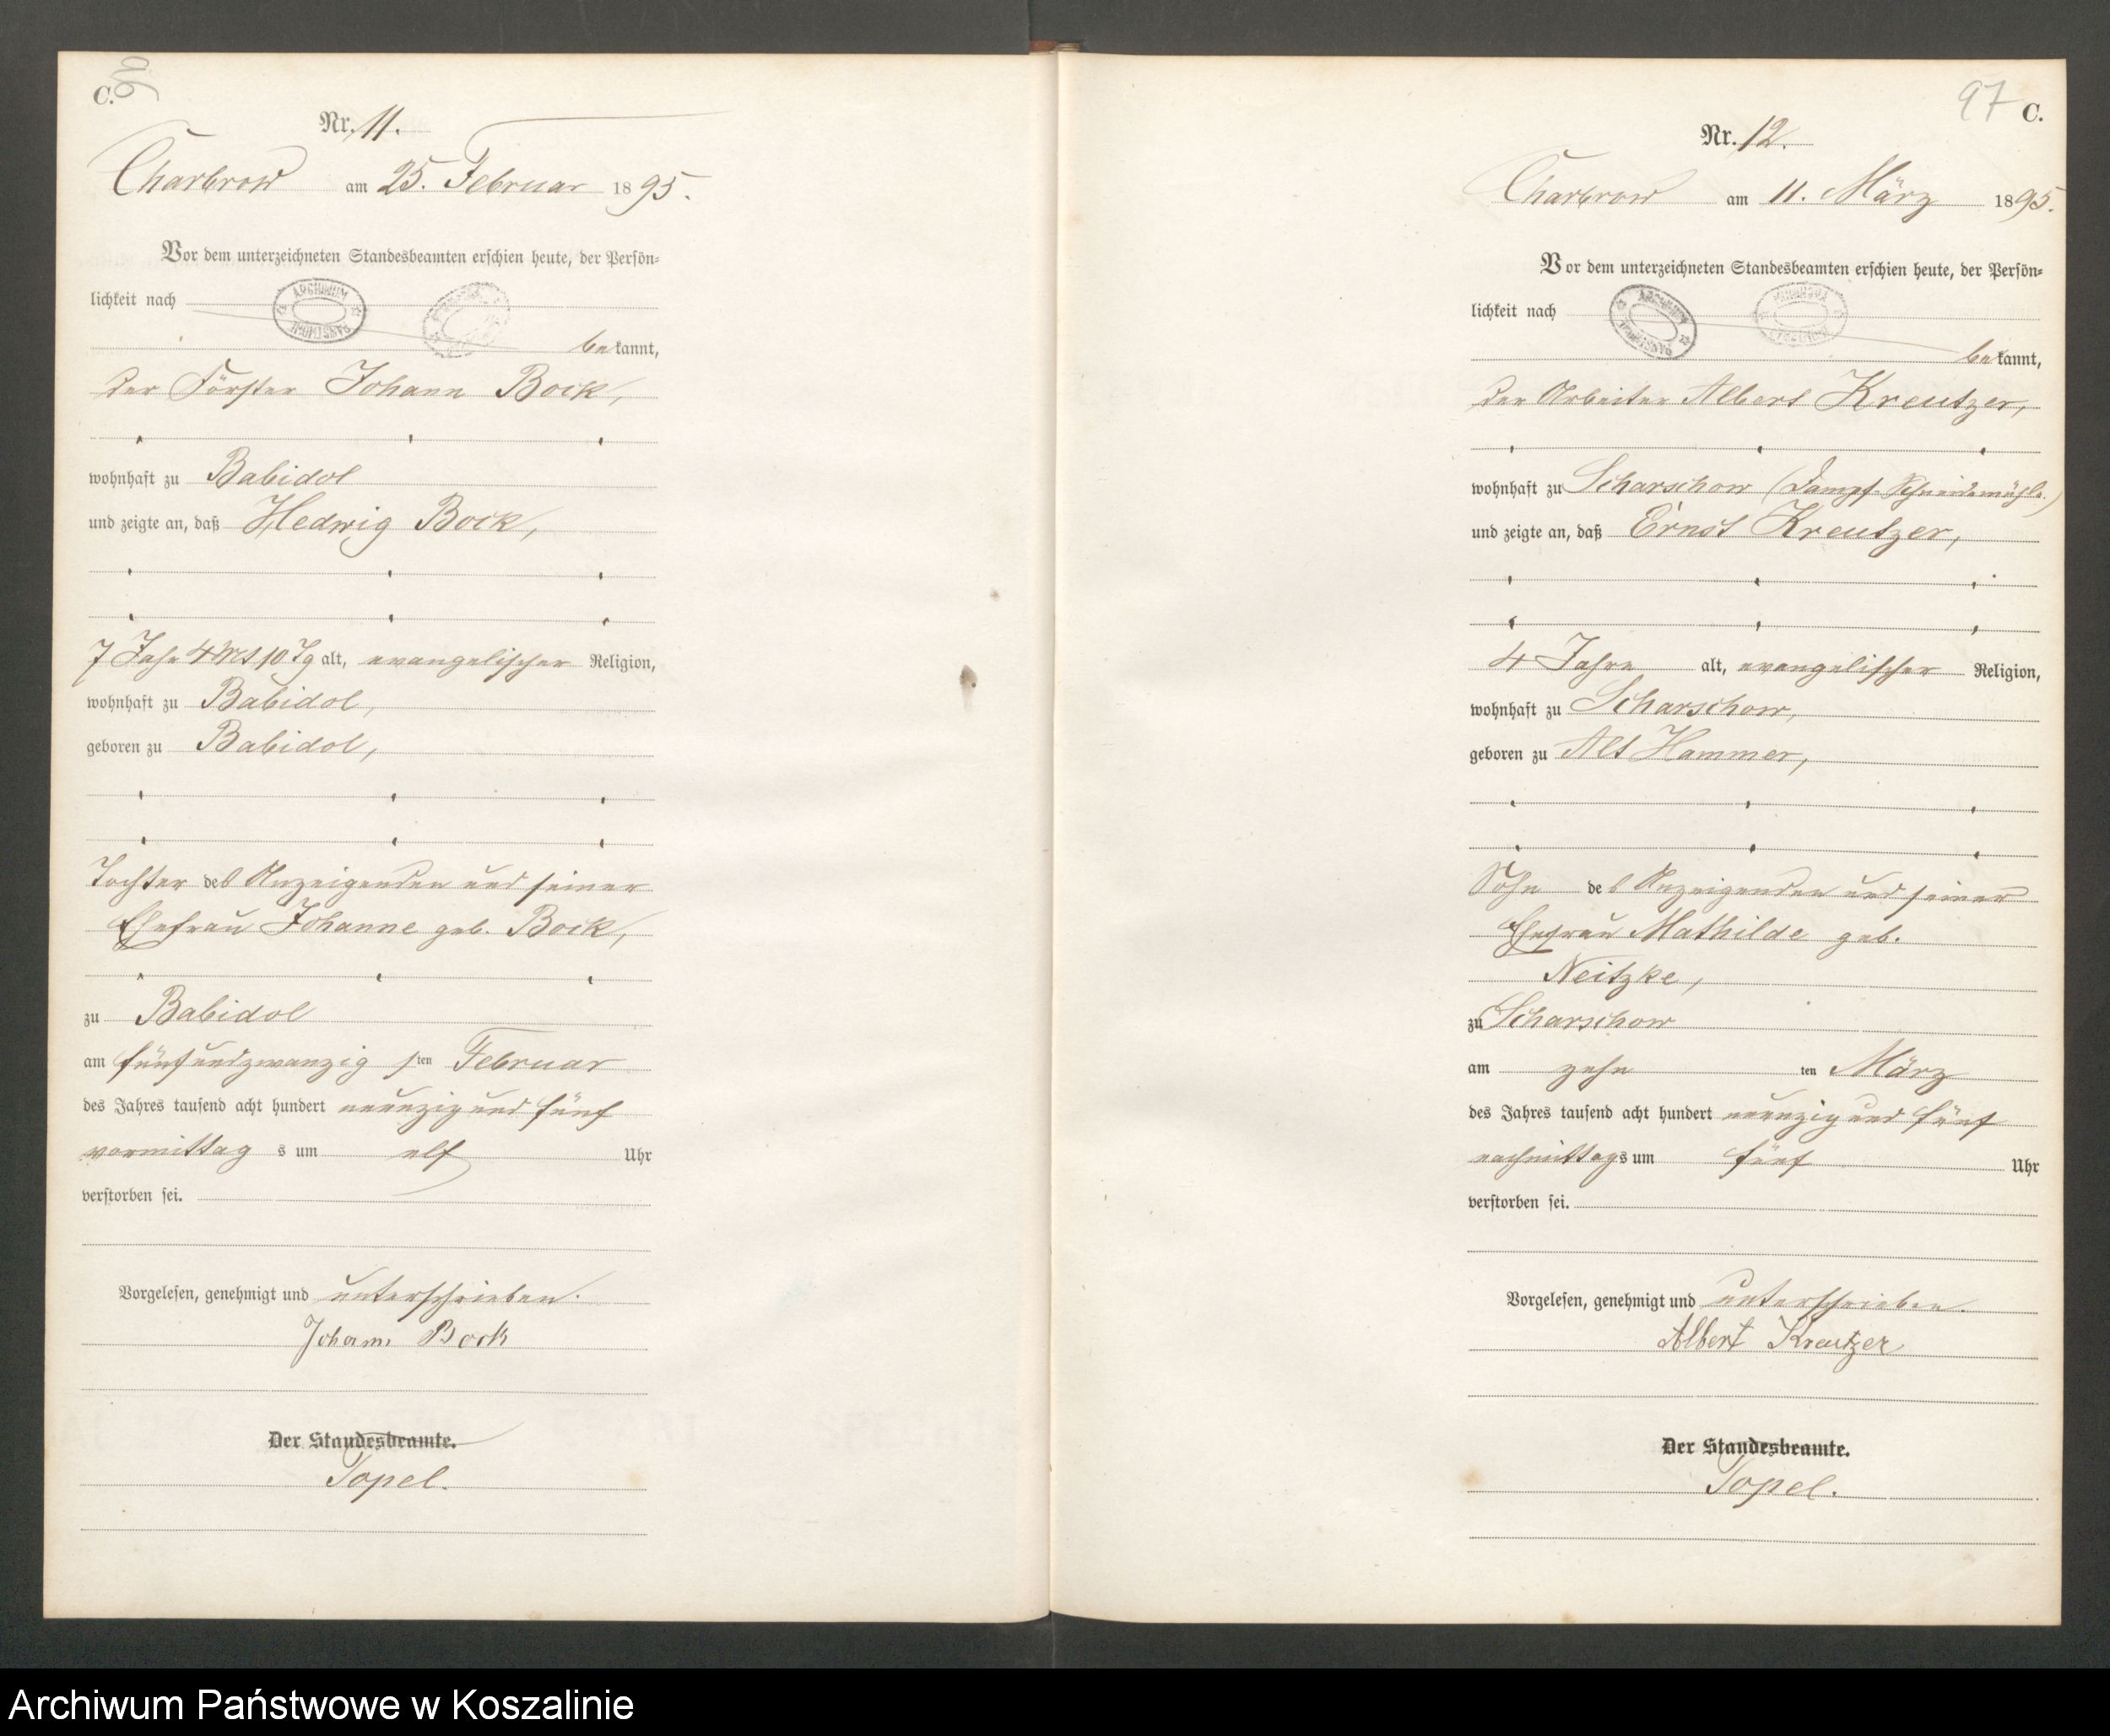 C.
Nr. 11.
Charbrow am 25. Februar 1895.
Vor dem unterzeichneten Standesbeamten erschien heute, der Persön-
lichkeit nach
ARCHIWUM
PAŃSTWOWE
bekannt,
der Förster Johann Bock,
wohnhaft zu Babidol
und zeigte an, daß Hedwig Bock,
7 Jahr 4 Mt 10 Tg alt, evangelischer Religion,
wohnhaft zu Babidol,
geboren zu Babidol,
Tochter des Anzeigenden und seiner
Ehefrau Johanne geb. Bock,
zu Babidol
am fünfundzwanzigsten Februar
des Jahres tausend acht hundert neunzig und fünf
vormittags um elf Uhr
verstorben sei.
Vorgelesen, genehmigt und unterschrieben.
Johann Bock
Der Standesbeamte.
Topel.
97 C.
Nr. 12.
Charbrow am 11. März 1895.
Vor dem unterzeichneten Standesbeamten erschien heute, der Persön-
lichkeit nach
ARCHIWUM
PAŃSTWOWE
bekannt,
der Arbeiter Albert Kreutzer,
wohnhaft zu Scharschow (Dampf-Schneidemühle.)
und zeigte an, daß Ernst Kreutzer,
4 Jahre alt, evangelischer Religion,
wohnhaft zu Scharschow,
geboren zu Alt Hammer,
Sohn des Anzeigenden und seiner
Ehefrau Mathilde geb.
Neitzke,
zu Scharschow
am zehnten März
des Jahres tausend acht hundert neunzig und fünf
nachmittags um fünf Uhr
verstorben sei.
Vorgelesen, genehmigt und unterschrieben.
Albert Kreutzer
Der Standesbeamte.
Topel.
Archiwum Państwowe w Koszalinie